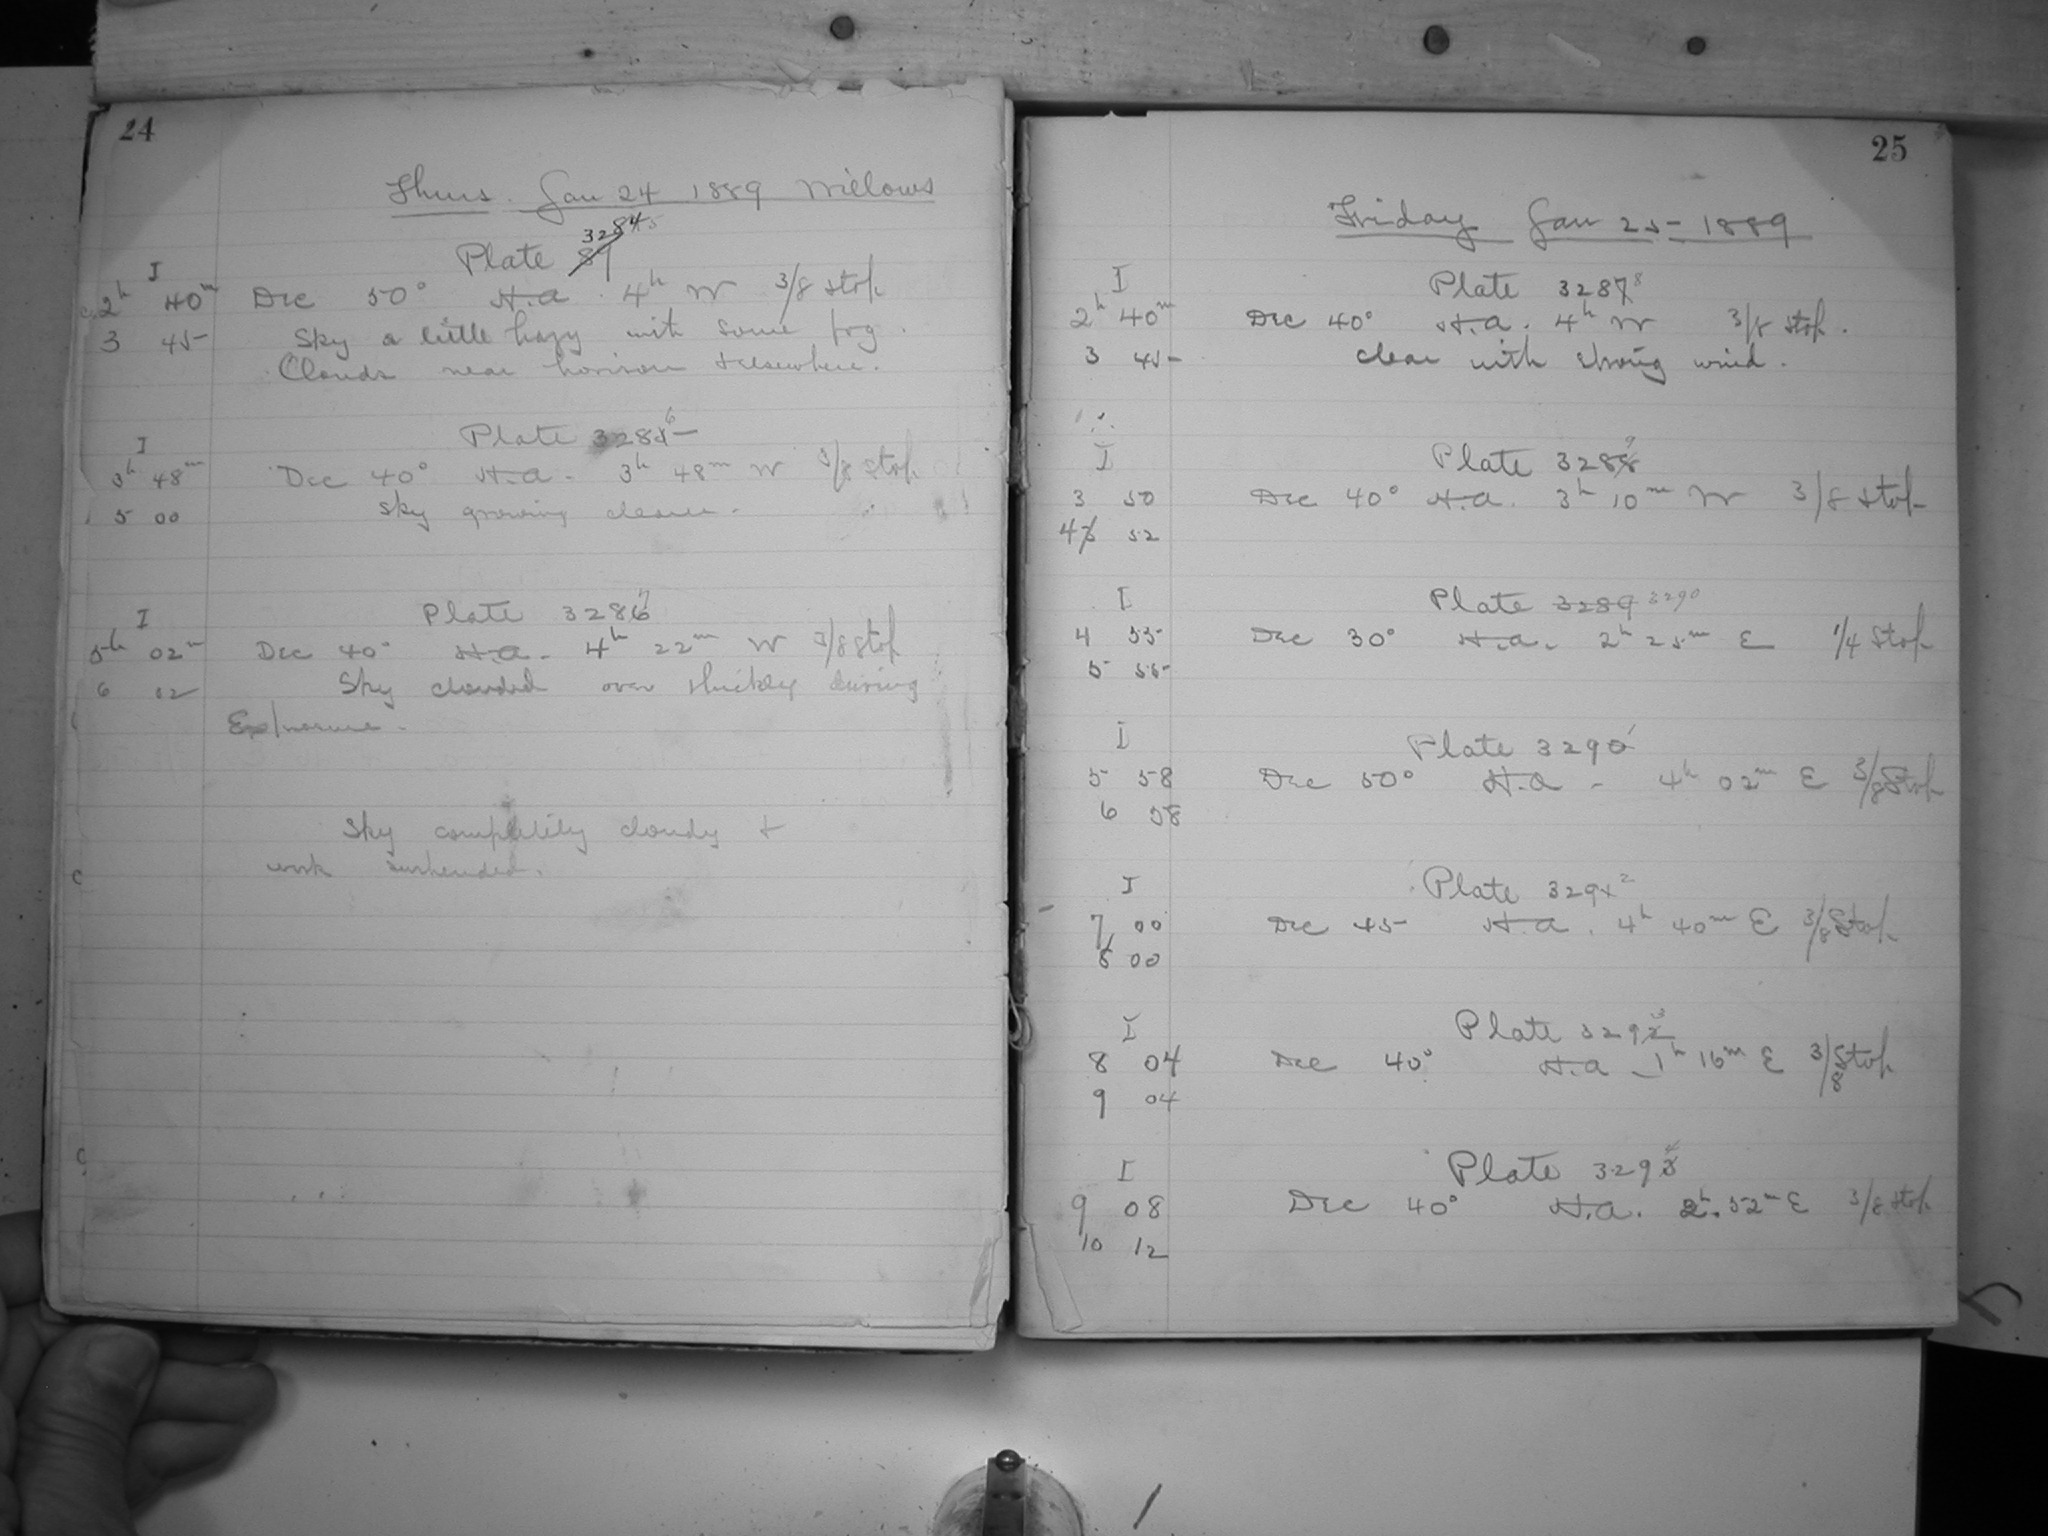 24
Thurs. Jan 24 1889 Willows
Plate 32845
I
2h 40m Dec 50° H.A. 4h W 3/8 stop
3 45 Sky a little hazy with some fog.
Clouds near horizon & elsewhere.
Plate 3285 6
I
3h 48m Dec 40° H.A. 3h 48m W 3/8 stop
5 00 Sky growing clearer.
Plate 3286 7
I
5h 02m Dec 40° H.A. 4h 22m W 3/8 stop
6 02 Sky clouded over thickly during
Exposure.
Sky completely cloudy &
work suspended.
25
Friday Jan 25 1889
I Plate 3287 8
2h 40m Dec 40° H.A. 4h W 3/8 stop.
3 45 clear with strong wind.
I Plate 3288 9
3 50 Dec 40° H.A. 3h 10m W 3/8 stop
4 52
I Plate 3289 3290
4 55 Dec 30° H.A. 2h 25m E 1/4 stop
5 55
I Plate 3290 1
5 58 Dec 50° H.A. 4h 02m E 3/8 stop
6 58
I Plate 3291 2
7 00 Dec 45 H.A. 4h 40m E 3/8 stop
8 00
I Plate 3292 3
8 04 Dec 40° H.A. 1h 16m E 3/8 stop
9 04
I Plate 3293 4
9 08 Dec 40° H.A. 2h 52m E 3/8 stop
10 12